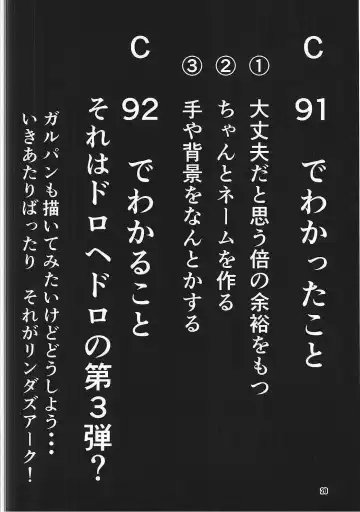 C91でわかったこと
①大丈夫だと思う倍の余裕をもつ
②ちゃんとネームを作る
③手や背景をなんとかする
C92でわかること
それはドロヘドロの第3弾?
ガルパンも描いてみたいけどどうしよう…
いきあたりばったり それがリンダズアーク!